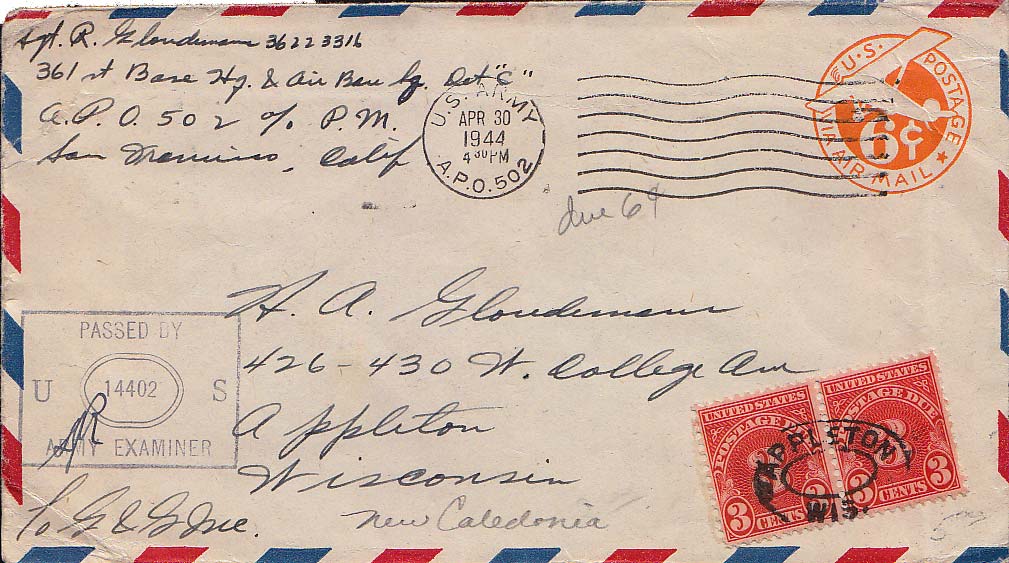 Sgt. R. Gloudemans 36223316
361st Base Hq. & Air Base Sq. Det "C"
A.P.O. 502 c/o P.M.
San Francisco, Calif
U.S. ARMY
APR 30
1944
4 30 PM
A.P.O. 502
U.S. POSTAGE
6¢
VIA AIR MAIL
due 6¢
H. A. Gloudemans
426-430 W. College Ave
Appleton
Wisconsin
PASSED BY
U 14402 S
ARMY EXAMINER
c/o G & G Inc.
New Caledonia
UNITED STATES
POSTAGE DUE
3 CENTS 3
UNITED STATES
POSTAGE DUE
3 CENTS 3
APPLETON
WIS.